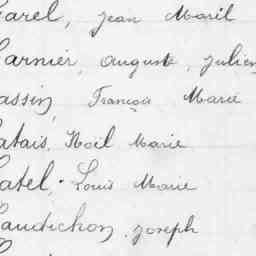 Garel, Jean Marie
Garnier, Auguste, Julien
Gassin, François Marie
Gatais, Noël Marie
Gatel, Louis Marie
Gaudichon, Joseph